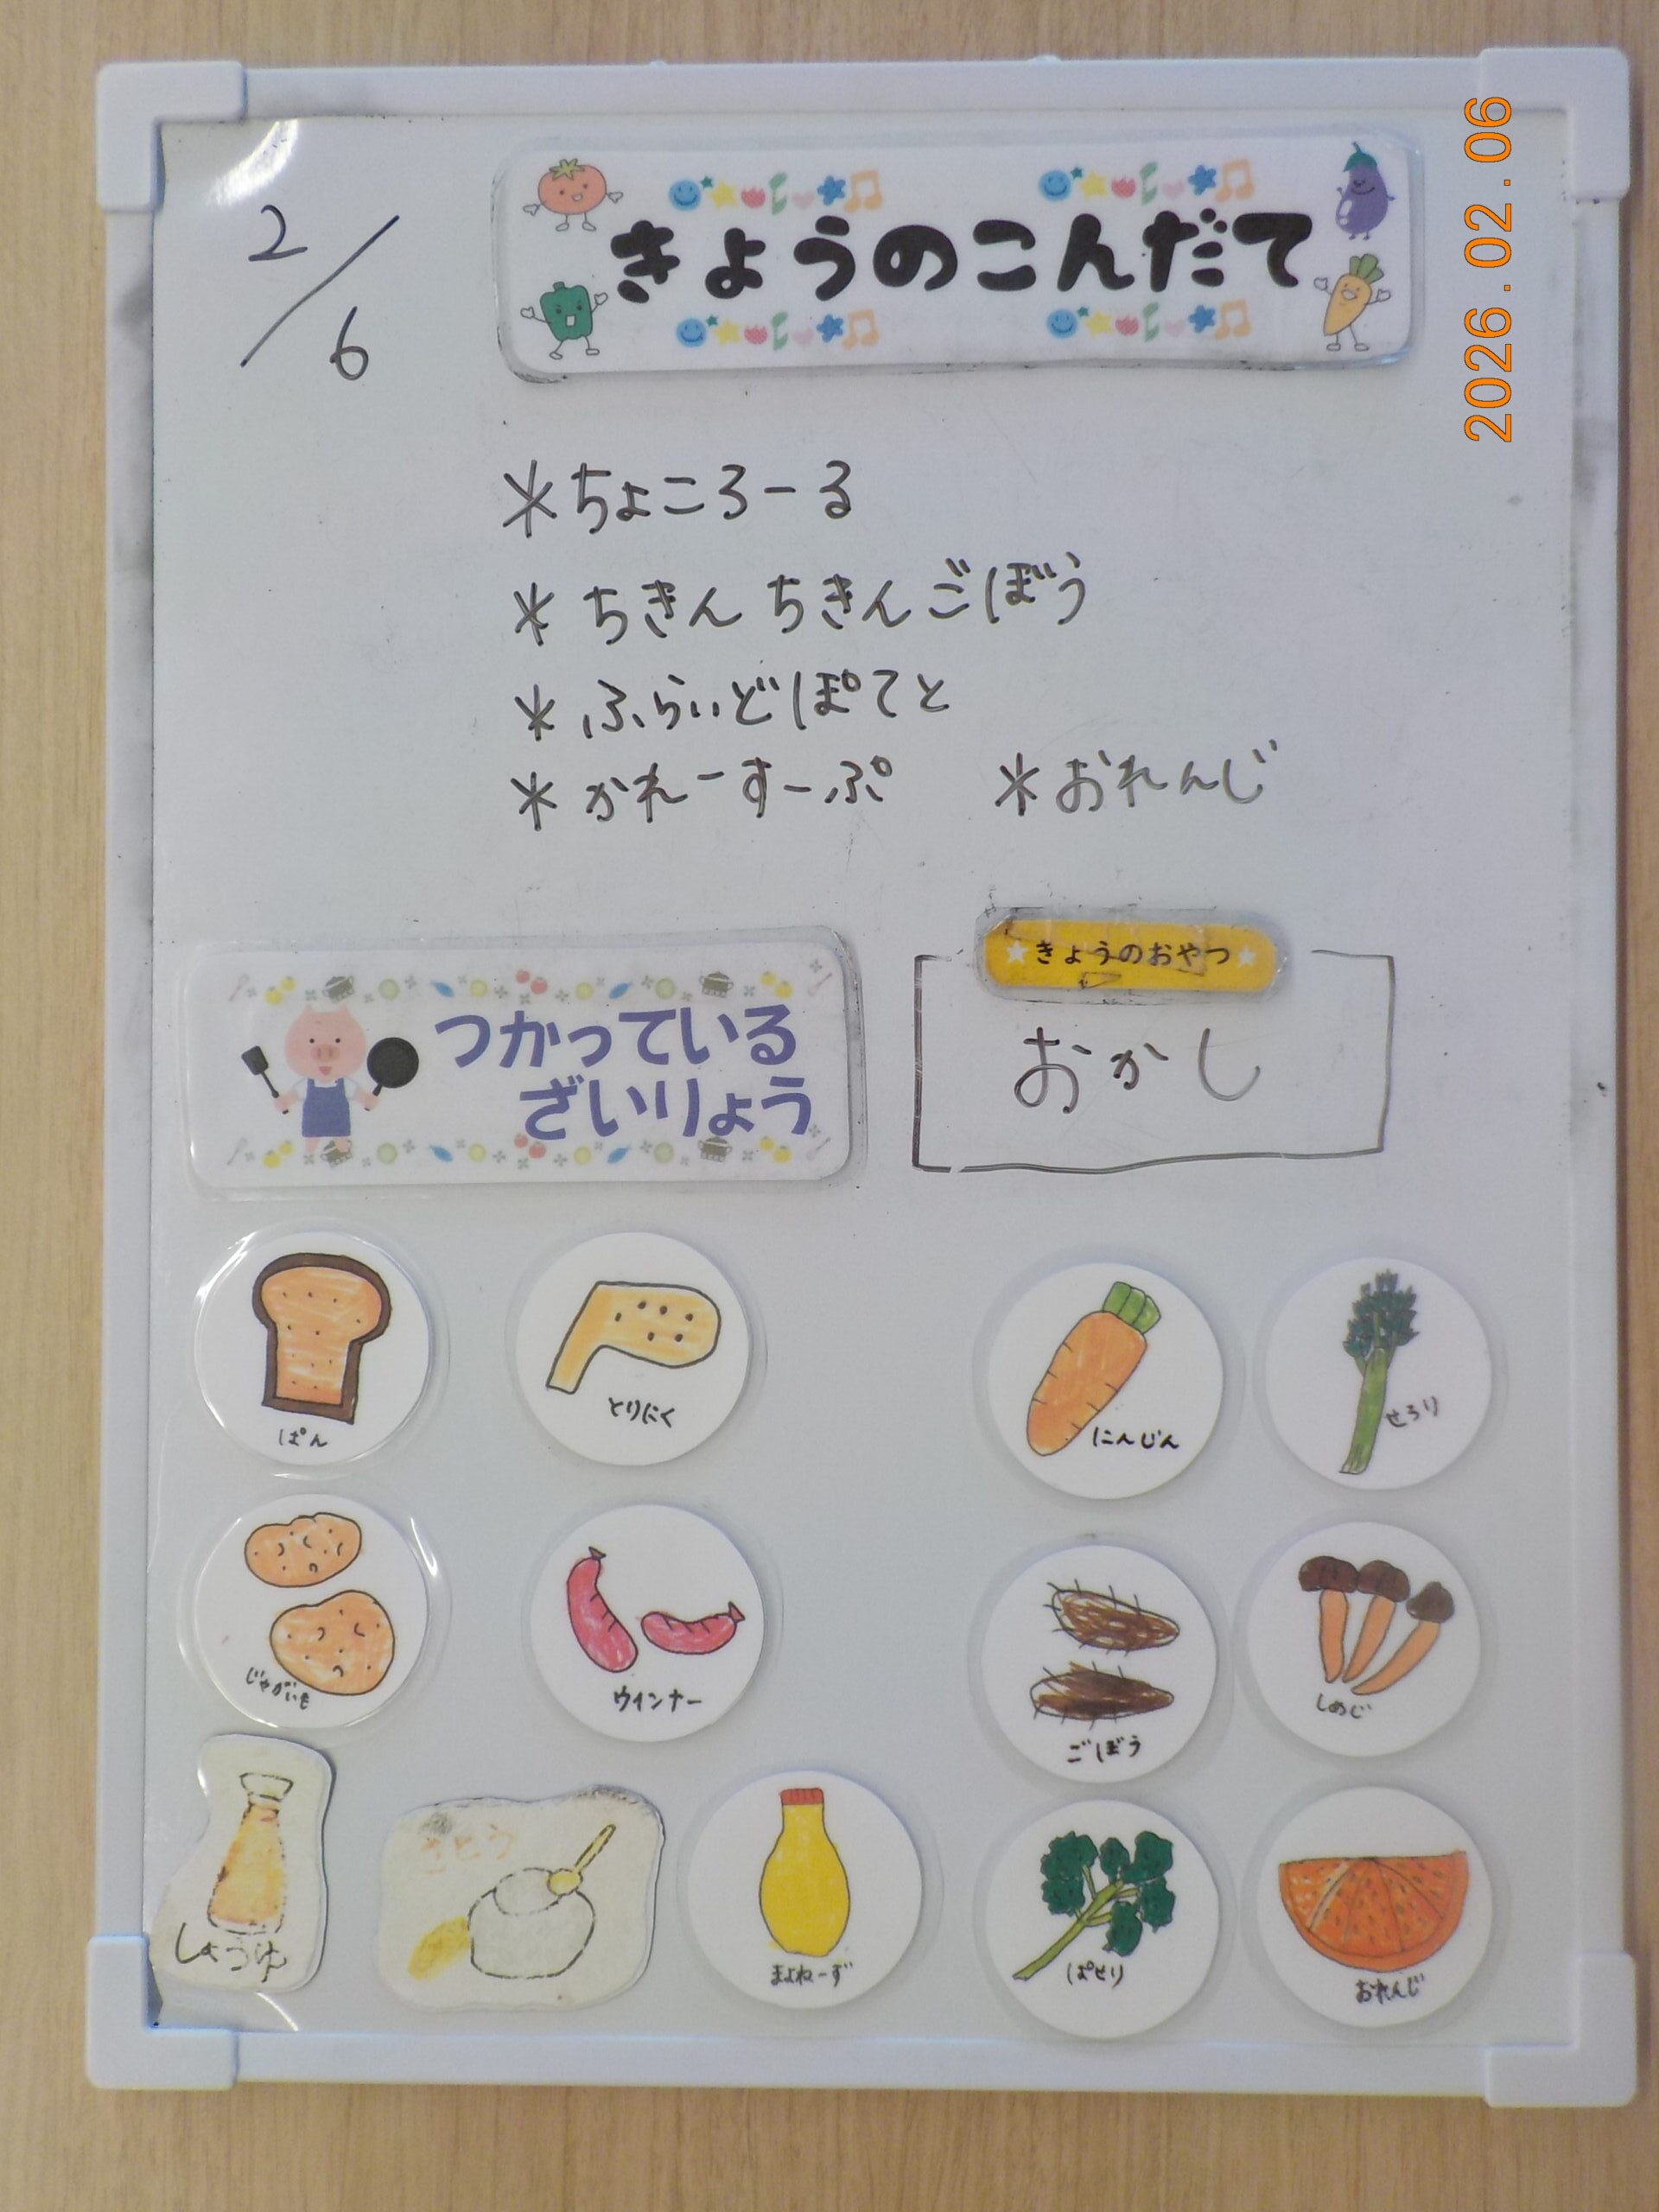 2/6
きょうのこんだて
2026.02.06
＊ちょころーる
＊ちきんちきんごぼう
＊ふらいどぽてと
＊かれーすーぷ　＊おれんじ
つかっている
ざいりょう
きょうのおやつ
おかし
ぱん
とりにく
にんじん
せろり
じゃがいも
ウインナー
ごぼう
しめじ
しょうゆ
さとう
まよねーず
ぱせり
おれんじ